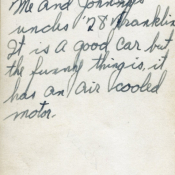 Me and Johnnys
uncles '28 Franklin
It is a good car but
the funny thing is, it
has an air cooled
motor.